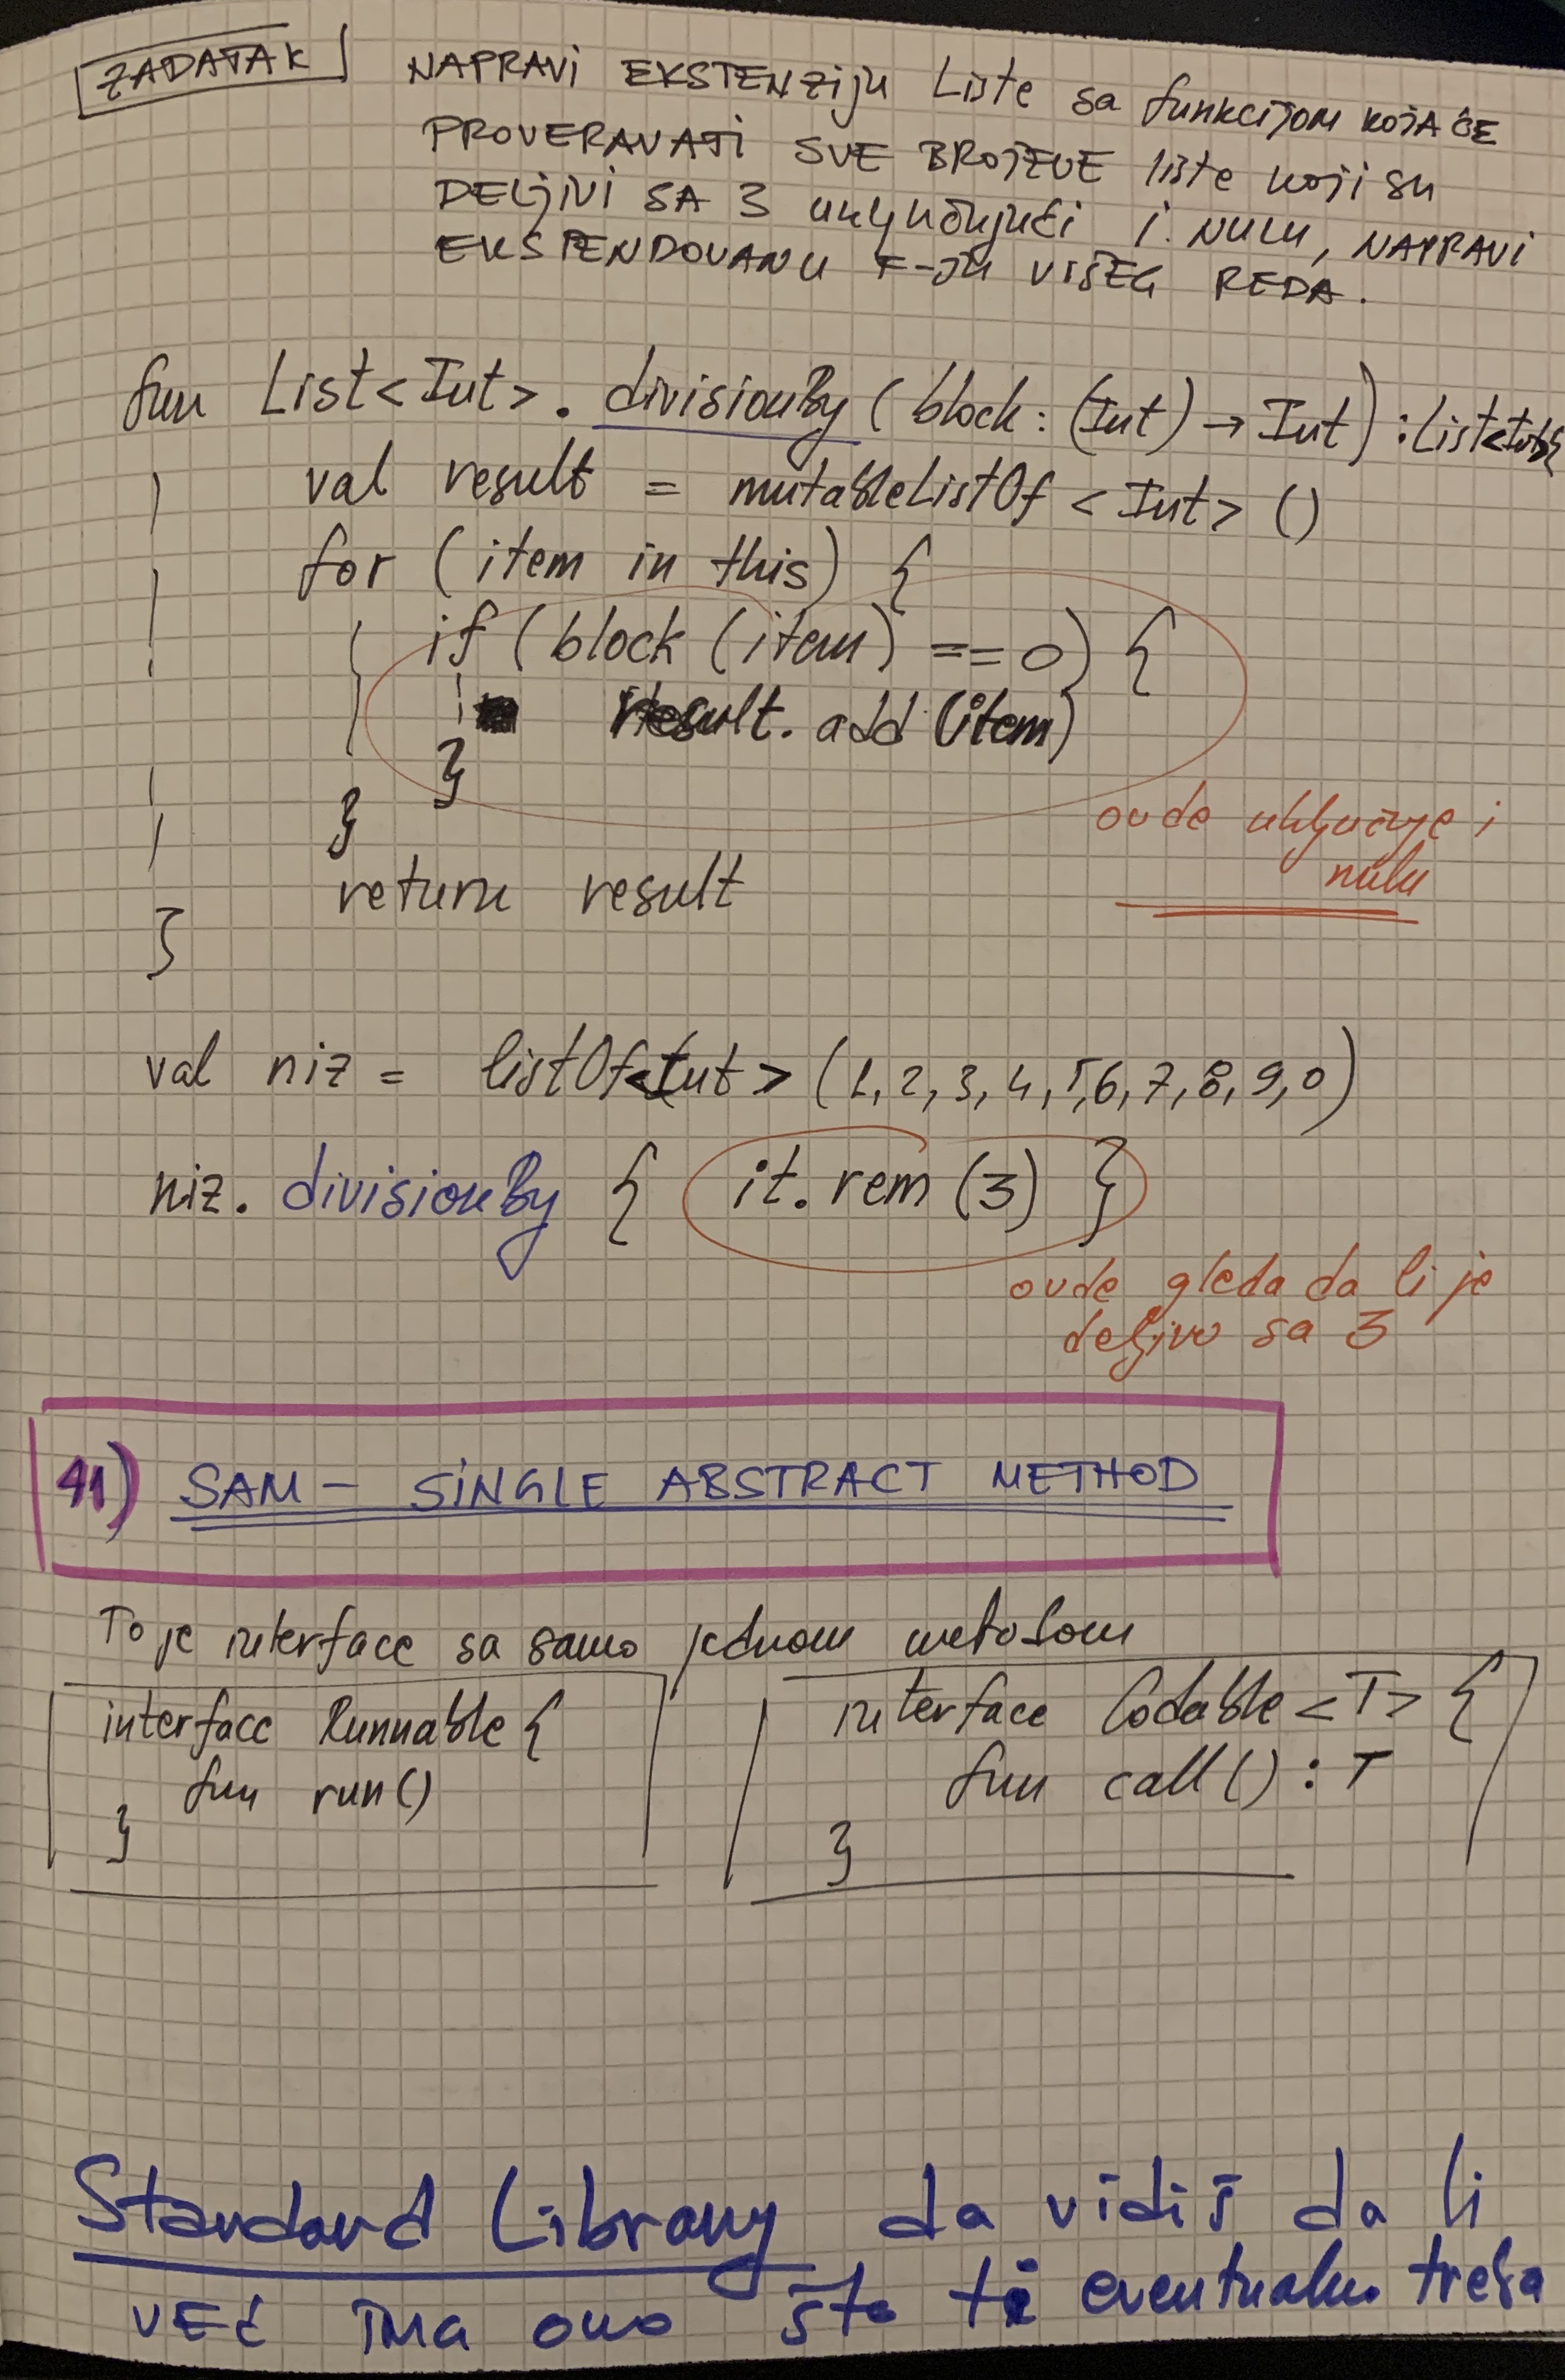 ZADATAK
NAPRAVI EKSTENZIJU Liste sa funkcijom KOJA ĆE
PROVERAVATI SVE BROJEVE liste koji su
DELJIVI SA 3 uključujući i NULU, NAPRAVI
EKSTENDOVANU F-JU VIŠEG REDA.
fun List<Int>.divisionBy(block: (Int) → Int) : List<Int>{
val result = mutableListOf <Int> ()
for (item in this) {
if (block (item) == 0) {
result.add(item)
}
}
ovde uključuje i
nulu
return result
}
val niz = listOf<Int> (1, 2, 3, 4, 5, 6, 7, 8, 9, 0)
niz. divisionBy { it.rem (3) }
ovde gleda da li je
deljivo sa 3
41) SAM - SINGLE ABSTRACT METHOD
To je interface sa samo jednom metodom
interface Runnable {
fun run()
}
interface Codable <T> {
fun call() : T
}
Standard Library da vidiš da li
VEĆ IMA ono što ti eventualno treba